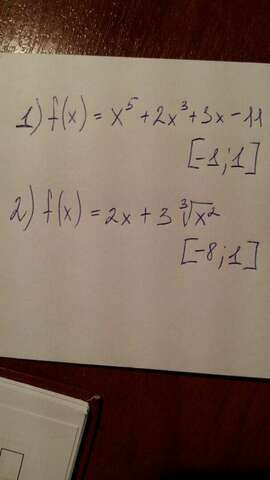 1) f(x) = x⁵ + 2x³ + 3x - 11
[-1; 1]
2) f(x) = 2x + 3 ∛x²
[-8; 1]